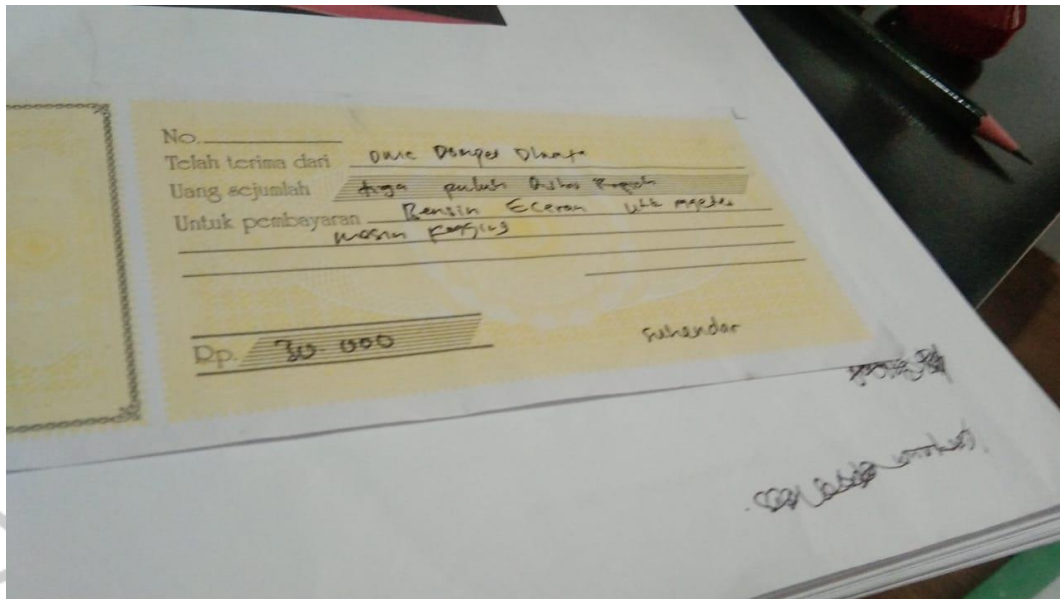 No.
Telah terima dari DMC Dompet Dhuafa
Uang sejumlah tiga puluh Ribu Rupiah
Untuk pembayaran Bensin Eceran utk
mesin Fogging
Rp. 30.000
Suhendar